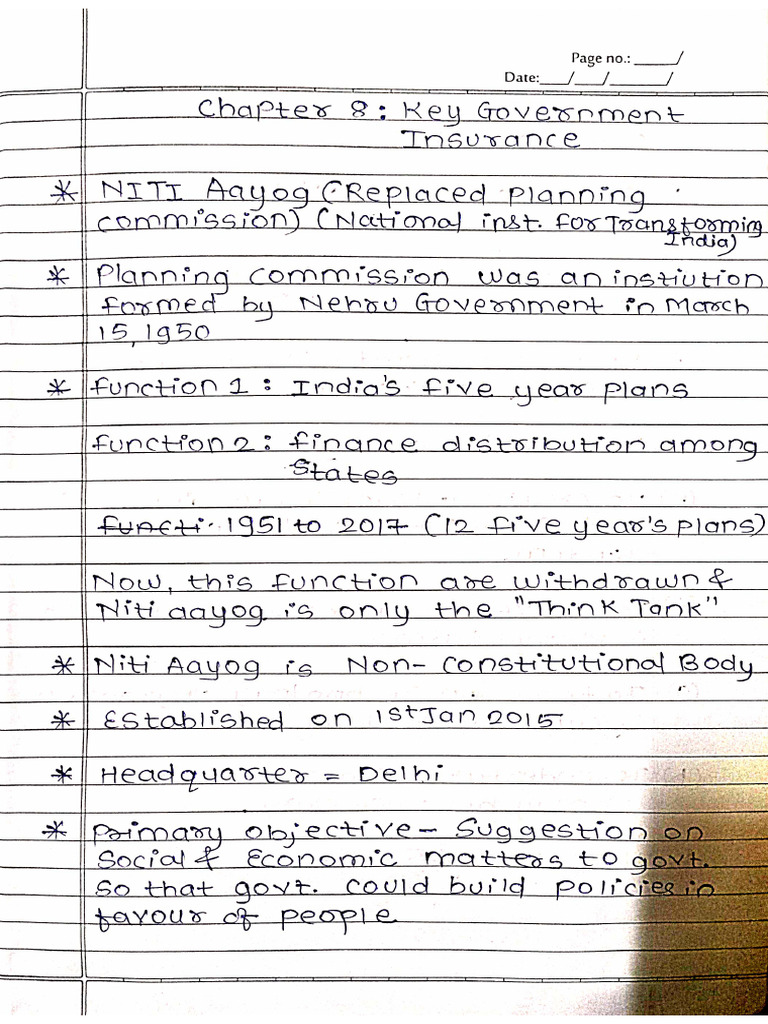 Page no.: _____/
Date:___/___/______/
Chapter 8: Key Government
Insurance
* NITI Aayog (Replaced planning
commission) (National inst. for Transforming
India)
* Planning commission was an instiution
formed by Nehru Government in March
15, 1950
* function 1: India's five year plans
function 2: finance distribution among
States
functi. 1951 to 2017 (12 five year's plans)
Now, this function are withdrawn &
Niti aayog is only the "Think Tank"
* Niti Aayog is Non-constitutional Body
* Established on 1st Jan 2015
* Headquarter = Delhi
* Primary objective - Suggestion on
Social & Economic matters to govt.
So that govt. could build policies in
favour of people